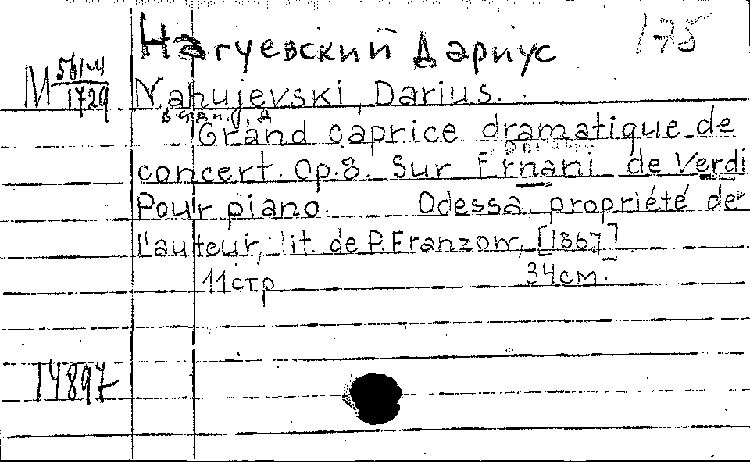 Нагуевский Дариус 175
М 561/М
1729
Nahujevski, Darius.
Grand caprice dramatique de
concert. Op.8. Sur Ernani de Verdi
Pour piano. Odessa, propriété de
l'auteur, lit. de P. Franzow, [1867]
11 стр 34 см.
14897